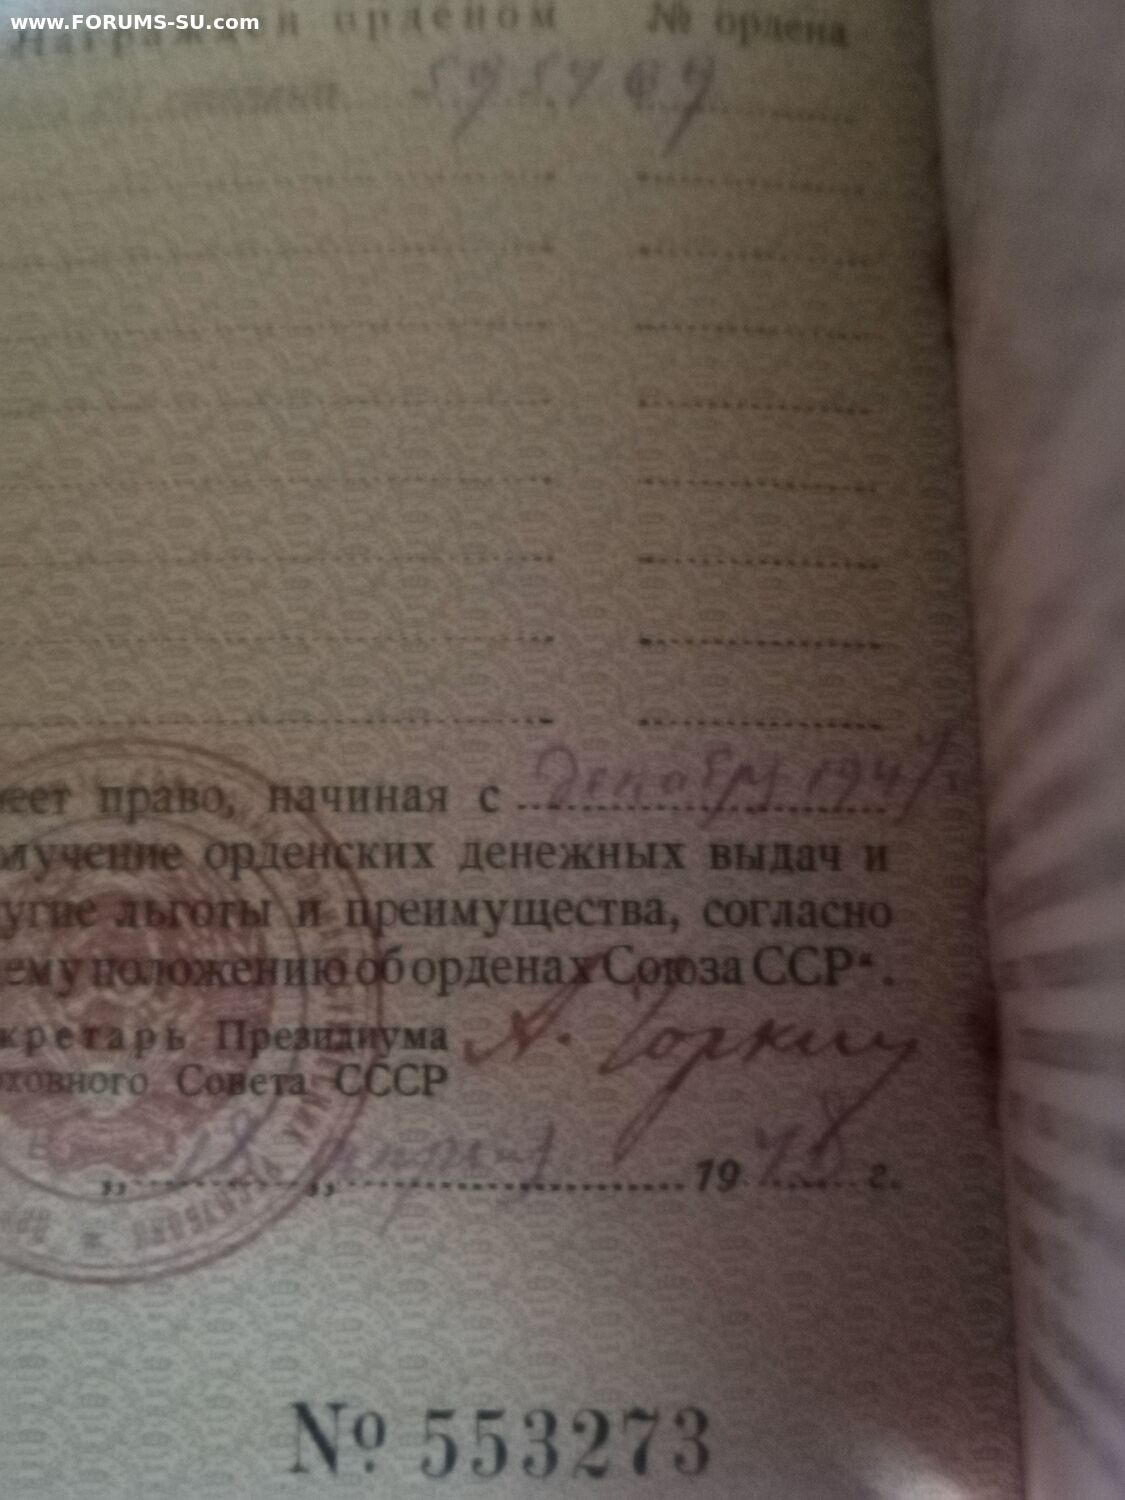 www.FORUMS-SU.com
Награжден орденом № ордена
595769
имеет право, начиная с декабря 1947 г
получение орденских денежных выдач и
другие льготы и преимущества, согласно
положению об орденах Союза ССР“.
Секретарь Президиума А. Горкин
Верховного Совета СССР
„18„ апреля 1948 г.
№ 553273